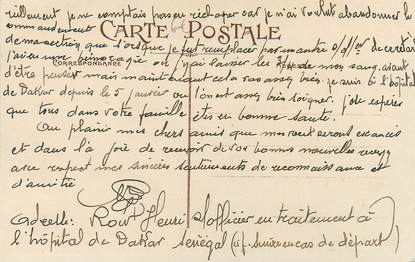 réellement je ne comptais pas en réchaper car je n'ai voulut abandonner le
commandement
CARTE POSTALE
de ma section que lorsque je fut remplacer par un autre s/offer de ce retard
CORRESPONDANCE
j'ai eu une hémoragie où j'y ai laisser les de mon sang. avant
d'être penser mais maintenant cela vas assez bien, je suis à l'hôpital
de Dakar depuis le 5 janvier où l'on est assez bien soigner. j'ose espérer
que tous dans votre famille êtes en bonne santé.
Au plaisir mes chers amis que vous
et dans la joie de recevoir de vos bonnes nouvelles recevez
avec respect mes sincères sentiments de reconnaissance et
d'amitié
Adresse: Henri s/officier en traitement à
l'hôpital de Dakar Sénégal (à f. suivre en cas de départ)